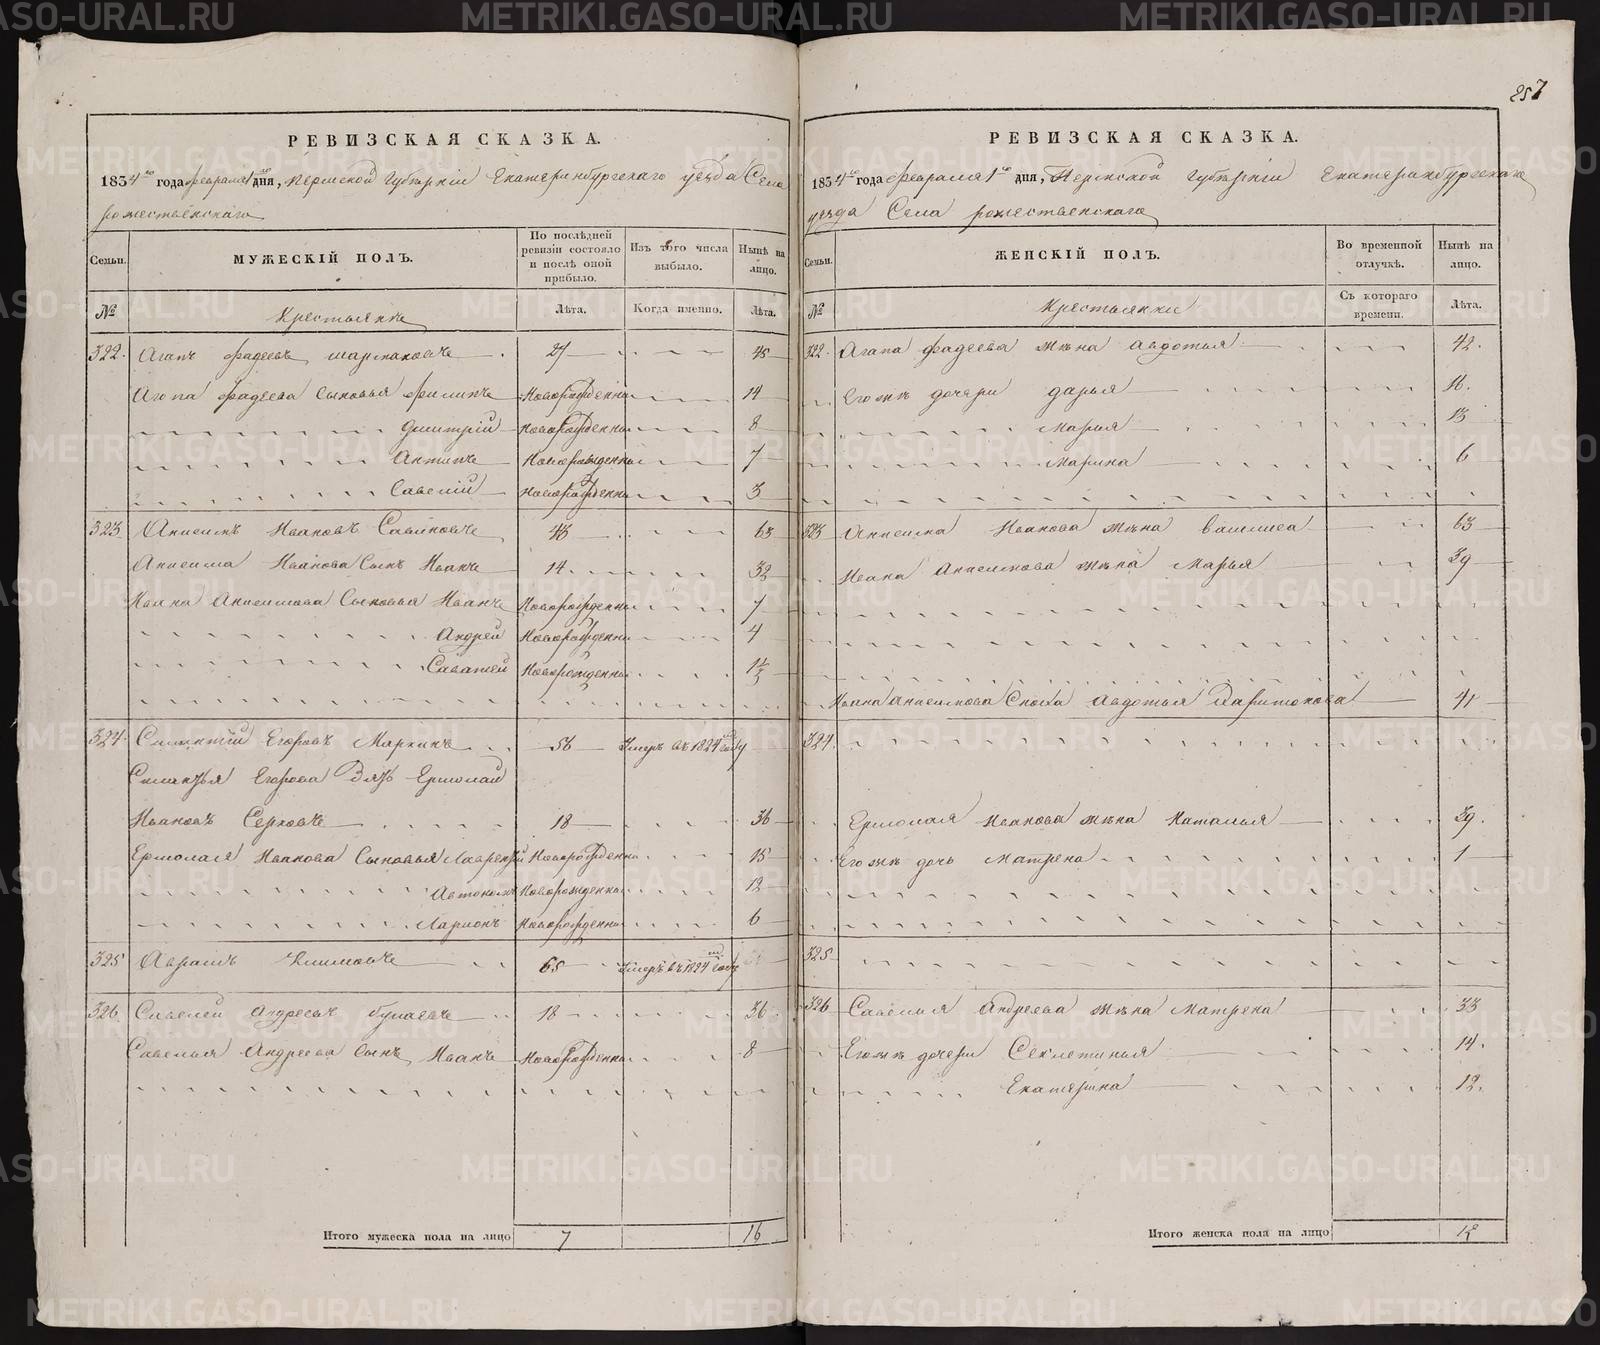 257
РЕВИЗСКАЯ СКАЗКА.
1834го года февраля 1го дня, Пермской Губернии Екатеринбургскаго уезда Села
рожественскаго
Семьи. МУЖЕСКІЙ ПОЛЪ. По послѣдней ревизіи состояло и послѣ оной прибыло. Изъ того числа выбыло. Нынѣ на лицо.
№ Крестьяне Лѣта. Когда именно. Лѣта.
322. Агапъ фадеевъ 27 45
Агапа фадеева Сыновья филипъ Новорожденны 14
Дмитрій Новорожденны 8
Антипъ Новорожденны 7
Савелій Новорожденны 3
323 Анисимъ Ивановъ 45 63
Анисима Иванова Сынъ Иванъ 14 32
Ивана Анисимова Сыновья Иванъ Новорожденны 7
Андрей Новорожденны 4
Саватей Новорожденны 1½
324. Егоровъ Маркинъ 56 Умеръ въ 1824м году
Егорова Зять Ермолай
Ивановъ Серковъ 18 36
Ермолая Иванова Сыновья Лаврентій Новорожденны 15
Автономъ Новорожденны 12
Ларионъ Новорожденны 6
325 Аврамъ 65 Умеръ въ 1824м году
326. Савелей Андреевъ 18 36
Савелья Андреева Сынъ Иванъ Новорожденны 8
Итого мужеска пола на лицо 7 16
РЕВИЗСКАЯ СКАЗКА.
1834го года февраля 1го дня, Пермской Губернии Екатеринбургскаго
уезда Села рожественскаго
Семьи. ЖЕНСКІЙ ПОЛЪ. Во временной отлучкѣ. Нынѣ на лицо.
№ Крестьянки Съ котораго времени. Лѣта.
322. Агапа фадеева жена Авдотья 42.
Егожъ дочери дарья 16.
Марья 13
Марина 6
323 Анисима Иванова жена Василиса 63
Ивана Анисимова жена Марья 39
Ивана Анисимова Сноха Авдотья Харитонова 41
324.
Ермолая Иванова жена Наталья 39.
Егожъ дочь Матрена 1
325
326 Савелья Андреева жена Матрена 33
Егожъ дочери Секлетинья 14.
Екатерина 12.
Итого женска пола на лицо 12
METRIKI.GASO-URAL.RU